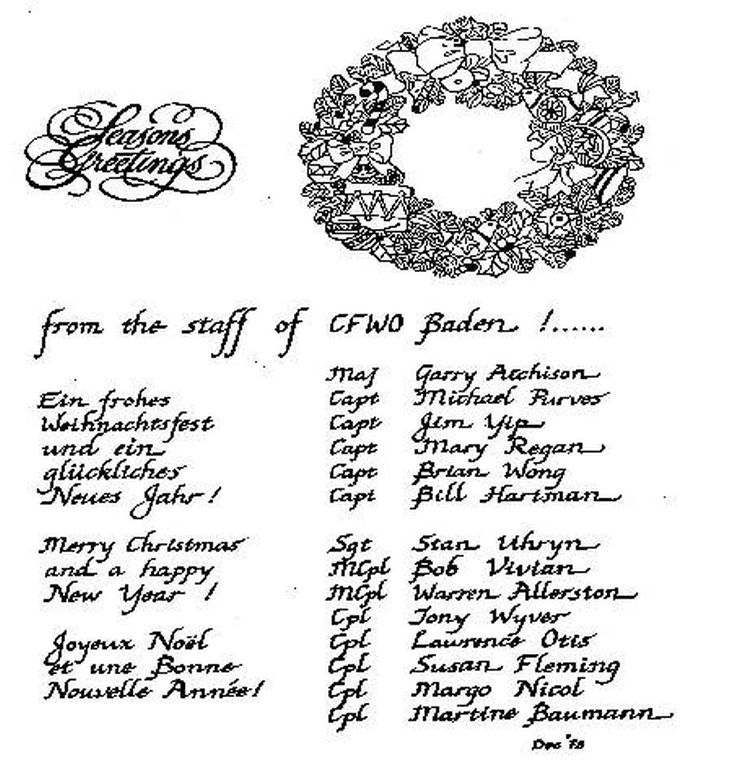 Seasons
Greetings
from the staff of CFWO Baden !......
Ein frohes
Weihnachtsfest
und ein
glückliches
Neues Jahr!
Merry Christmas
and a happy
New Year !
Joyeux Noël
et une Bonne
Nouvelle Année!
Maj Garry Atchison
Capt Michael Purves
Capt Jim Yip
Capt Mary Regan
Capt Brian Wong
Capt Bill Hartman
Sgt Stan Uhryn
MCpl Bob Vivian
MCpl Warren Allerston
Cpl Tony Wyver
Cpl Laurence Otis
Cpl Susan Fleming
Cpl Margo Nicol
Cpl Martine Baumann
Dec